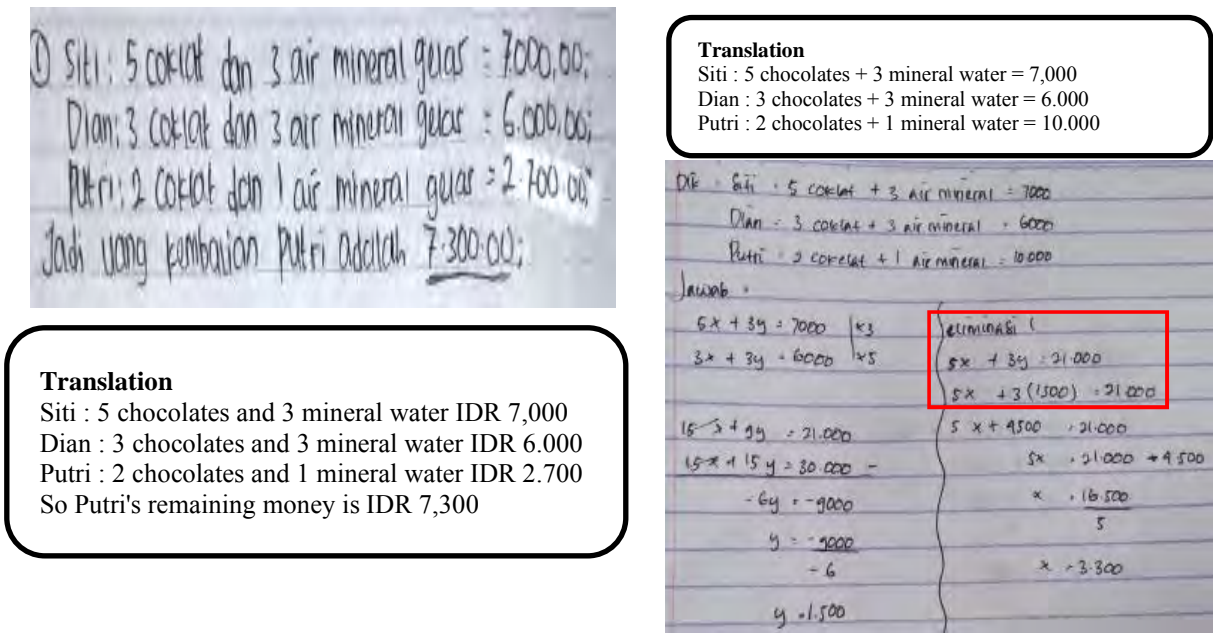 ① Siti: 5 coklat dan 3 air mineral gelas = 7.000,00;
Dian: 3 coklat dan 3 air mineral gelas = 6.000,00;
Putri: 2 coklat dan 1 air mineral gelas = 2.700.00;
Jadi uang kembalian Putri adalah 7.300.00;
Translation
Siti : 5 chocolates and 3 mineral water IDR 7,000
Dian : 3 chocolates and 3 mineral water IDR 6.000
Putri : 2 chocolates and 1 mineral water IDR 2.700
So Putri's remaining money is IDR 7,300
Translation
Siti : 5 chocolates + 3 mineral water = 7,000
Dian : 3 chocolates + 3 mineral water = 6.000
Putri : 2 chocolates + 1 mineral water = 10.000
Dik = Siti = 5 coklat + 3 air mineral = 7000
Dian = 3 coklat + 3 air mineral = 6000
Putri = 2 cokelat + 1 air mineral = 10.000
Jawab =
5x + 3y = 7000 | x3
3x + 3y = 6000 | x5
15x + 9y = 21.000
15x + 15y = 30.000 -
-6y = -9000
y = -9000
-6
y = 1.500
eliminasi (
5x + 3y = 21.000
5x + 3(1500) = 21.000
5x + 4500 = 21.000
5x = 21.000 + 4500
x = 16.500
5
x = 3.300